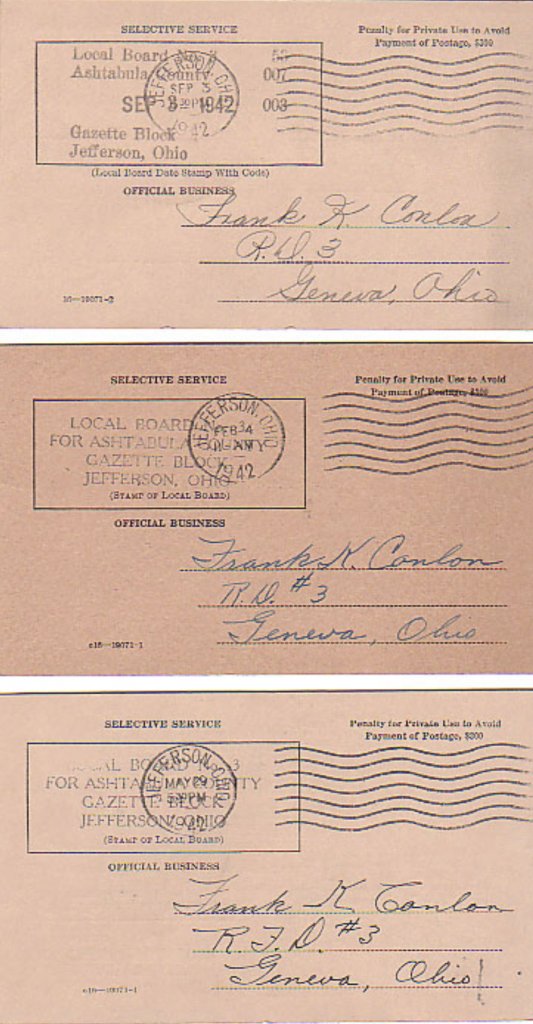 SELECTIVE SERVICE
Penalty for Private Use to Avoid
Payment of Postage, $300
Local Board
Ashtabula County 007
SEP 3 1942 003
Gazette Block
Jefferson, Ohio
JEFFERSON, OHIO
SEP 3
1942
(Local Board Date Stamp With Code)
OFFICIAL BUSINESS
Frank K Conlon
R.D. 3
Geneva, Ohio
16—19071-2
SELECTIVE SERVICE
Penalty for Private Use to Avoid
Payment of Postage, $300
LOCAL BOARD
FOR ASHTABULA COUNTY
GAZETTE BLOCK
JEFFERSON, OHIO
(STAMP OF LOCAL BOARD)
JEFFERSON, OHIO
1942
OFFICIAL BUSINESS
Frank K. Conlon
R.D. #3
Geneva, Ohio
c16—19071-1
SELECTIVE SERVICE
Penalty for Private Use to Avoid
Payment of Postage, $300
LOCAL BOARD NO. 3
FOR ASHTABULA COUNTY
GAZETTE BLOCK
JEFFERSON, OHIO
(STAMP OF LOCAL BOARD)
JEFFERSON, OHIO
MAY 29
PM
1942
OFFICIAL BUSINESS
Frank K Conlon
R.F.D. #3
Geneva, Ohio
c16—19071-1